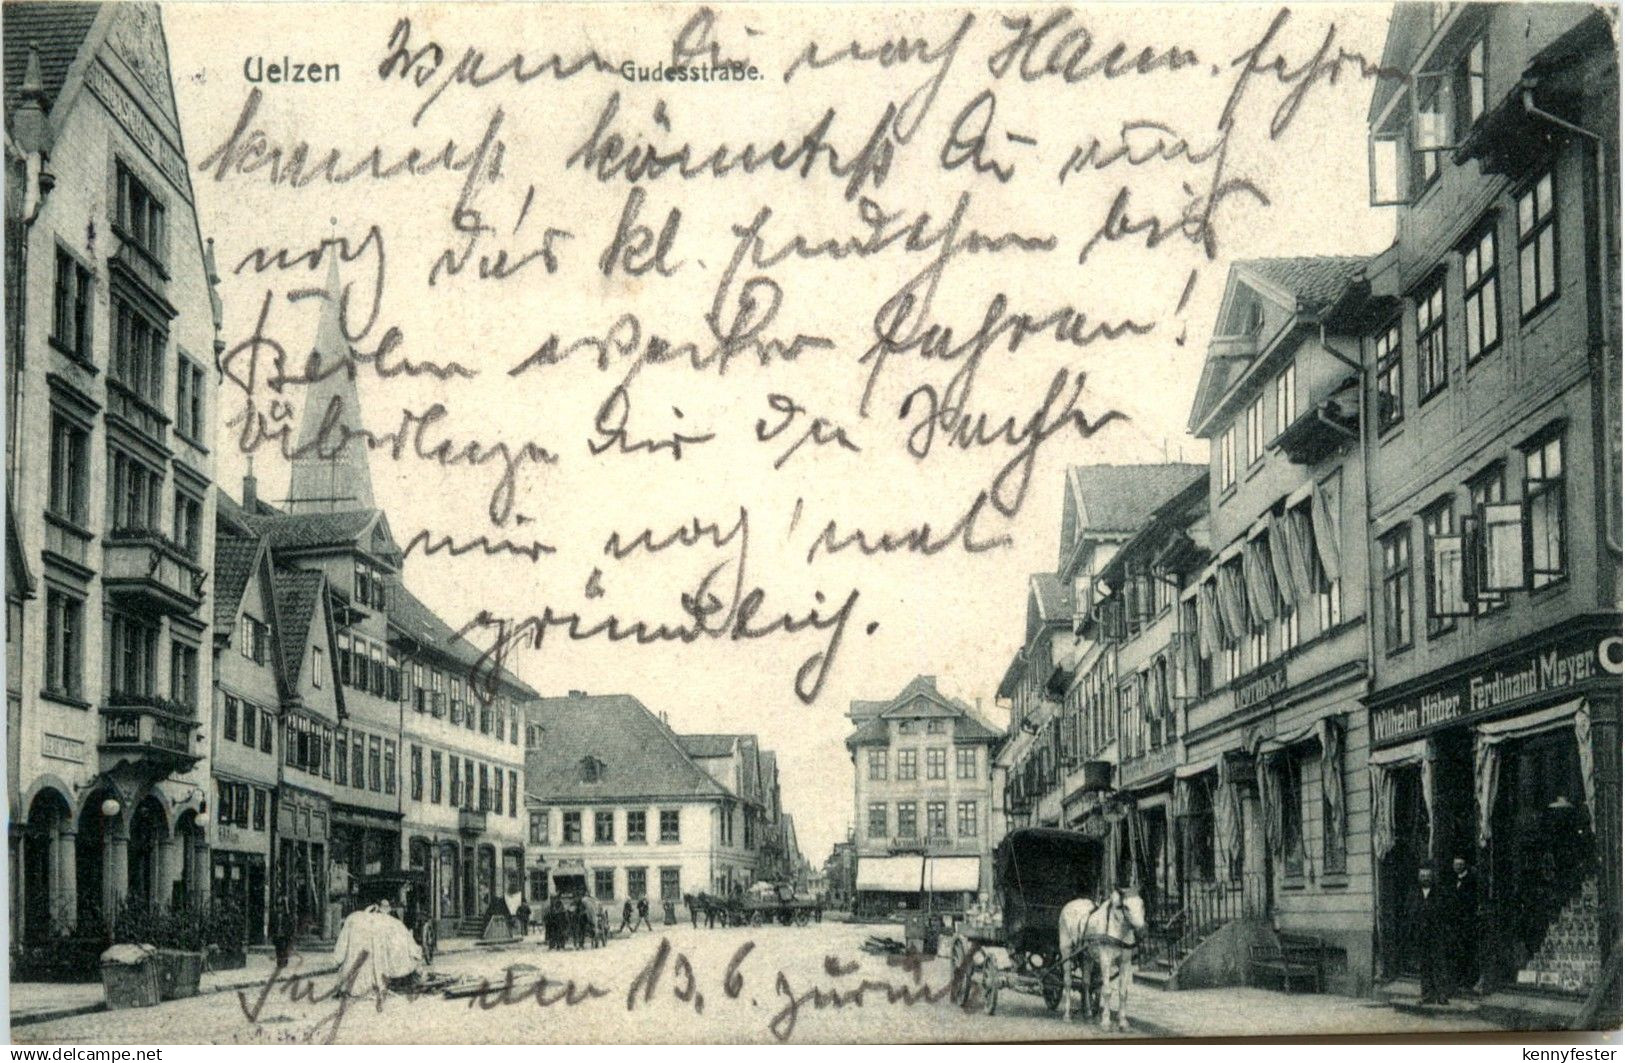 Uelzen
Gudesstraße.
Wenn Du nach Hann. fahren
kannst, könntest Du auch
noch das kl. Endchen bis
Berlin weiter fahren!
Überlege Dir die Sache
mir noch 'mal
gründlich.
Fahre am 13. 6. zurück
Hotel
Wilhelm Höber. Ferdinand Meyer.
kennyfester